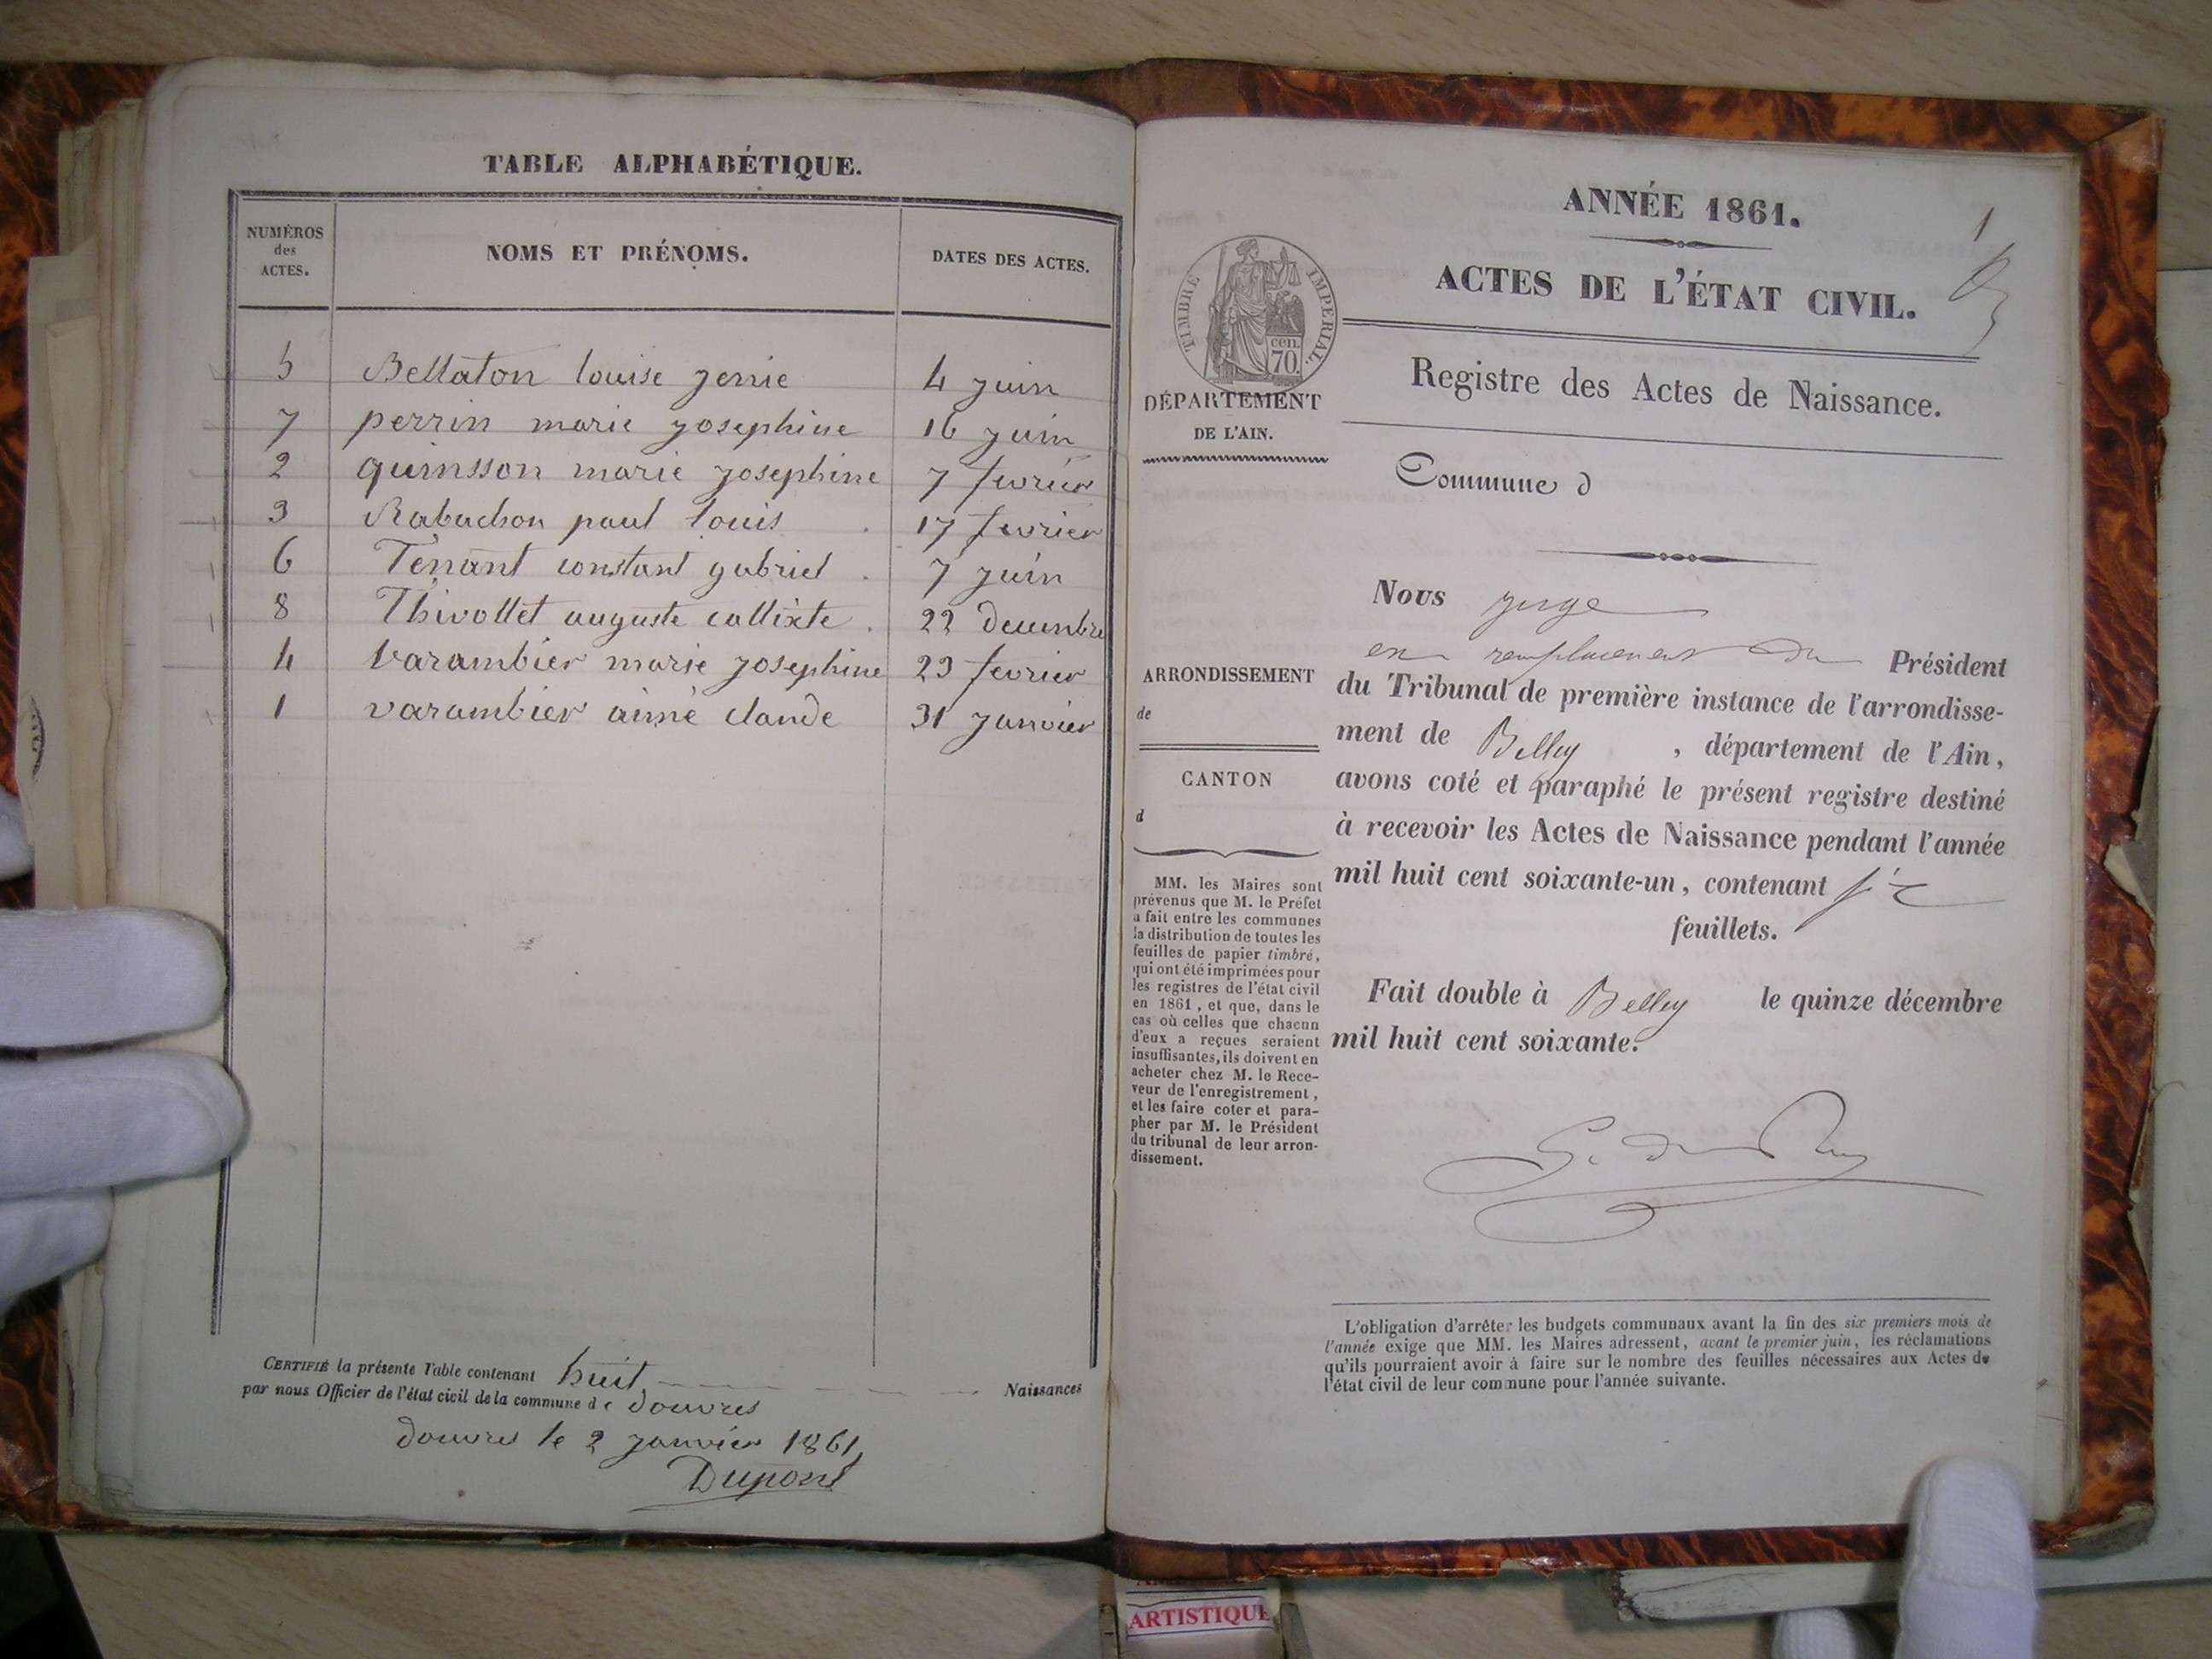 TABLE ALPHABÉTIQUE.
NUMÉROS des ACTES.
NOMS ET PRÉNOMS.
DATES DES ACTES.
5 Bellaton louise jenie 4 juin
7 perrin marie josephine 16 juin
2 quinsson marie josephine 7 fevrier
3 Rabuchon paul louis 17 fevrier
6 Tenant constant gabriel 7 juin
8 Thivollet auguste callixte 22 decembre
4 varambier marie josephine 23 fevrier
1 varambier aimé claude 31 janvier
CERTIFIÉ la présente Table contenant huit Naissances
par nous Officier de l'état civil de la commune de douvres
douvres le 2 janvier 1861
Dupont
ANNÉE 1861.
1
ACTES DE L'ÉTAT CIVIL.
TIMBRE IMPÉRIAL
cen.
70.
Registre des Actes de Naissance.
DÉPARTEMENT
DE L'AIN.
Commune d
Nous juge
en remplacement du Président
du Tribunal de première instance de l'arrondisse-
ment de Belley, département de l'Ain,
avons coté et paraphé le présent registre destiné
à recevoir les Actes de Naissance pendant l'année
mil huit cent soixante-un, contenant six
feuillets.
Fait double à Belley le quinze décembre
mil huit cent soixante.
ARRONDISSEMENT
de
CANTON
d
MM. les Maires sont
prévenus que M. le Préfet
a fait entre les communes
la distribution de toutes les
feuilles de papier timbré,
qui ont été imprimées pour
les registres de l'état civil
en 1861, et que, dans le
cas où celles que chacun
d'eux a reçues seraient
insuffisantes, ils doivent en
acheter chez M. le Rece-
veur de l'enregistrement,
et les faire coter et para-
pher par M. le Président
du tribunal de leur arron-
dissement.
L'obligation d'arrêter les budgets communaux avant la fin des six premiers mois de
l'année exige que MM. les Maires adressent, avant le premier juin, les réclamations
qu'ils pourraient avoir à faire sur le nombre des feuilles nécessaires aux Actes de
l'état civil de leur commune pour l'année suivante.
ARTISTIQUE